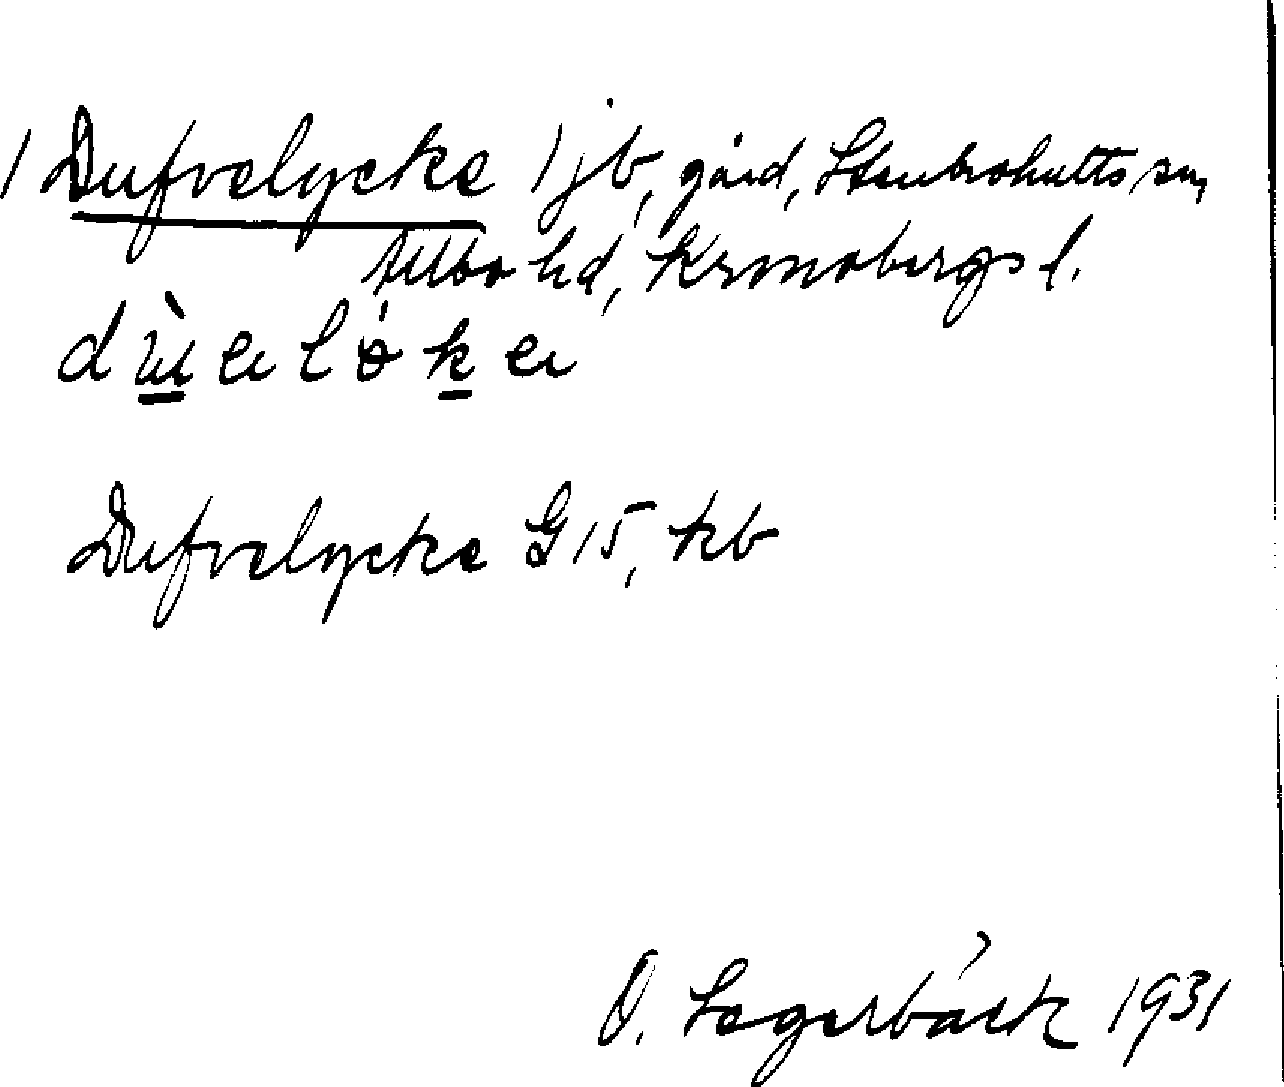 1 Dufvelycke 1 jb, gård, Stenbrohults sn,
Allbo hd, Kronobergs l.
Dufvelycke G 15, kb
O. Lagerbäck 1931